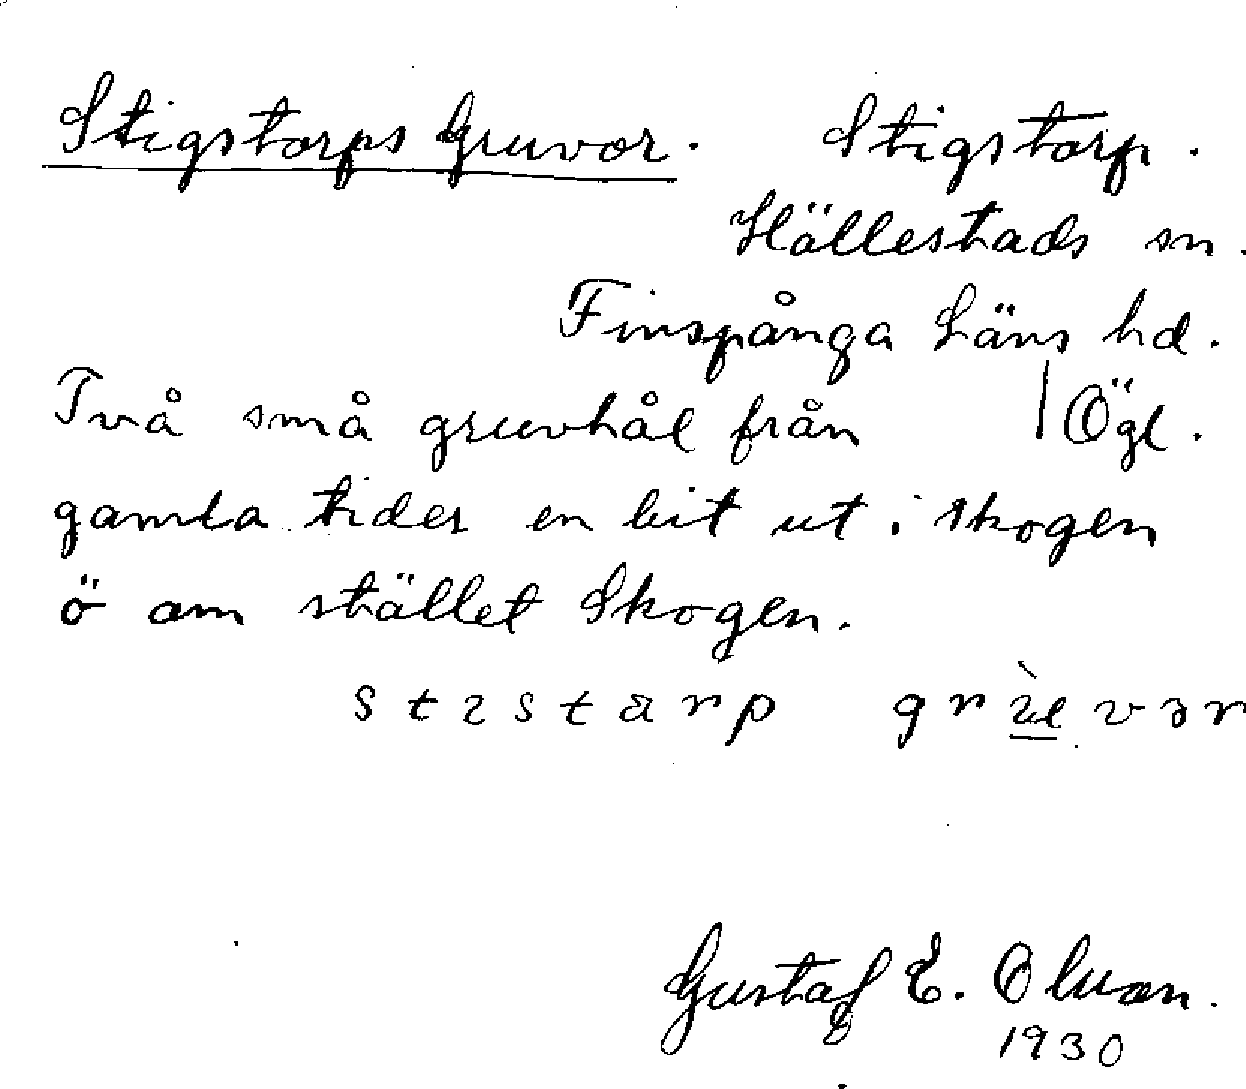 Stigstorps Gruvor. Stigstorp.
Hällestads sn.
Finspånga Läns hd.
Två små gruvhål från | Ögl.
gamla tider en bit ut i skogen
ö om stället Skogen.
gr
Gustaf E. Olson.
1930